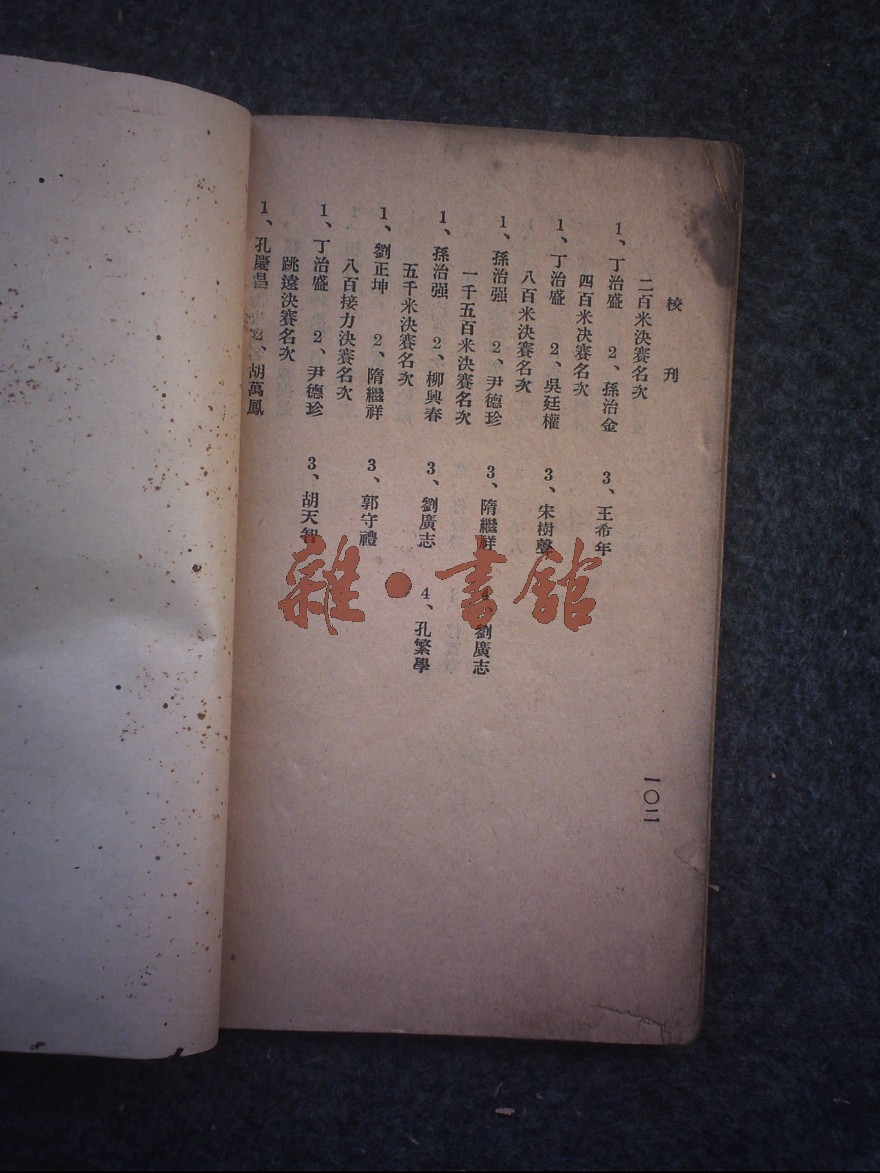 校刊
二百米決賽名次
1、丁治盛 2、孫治金 3、王希年
四百米決賽名次
1、丁治盛 2、吳廷權 3、宋樹聲
八百米決賽名次
1、孫治强 2、尹德珍 3、隋繼祥 4、劉廣志
一千五百米決賽名次
1、孫治强 2、柳興春 3、劉廣志 4、孔繁學
五千米決賽名次
1、劉正坤 2、隋繼祥 3、郭守禮
八百接力決賽名次
1、丁治盛 2、尹德珍 3、胡天智
跳遠決賽名次
1、孔慶昌 2、胡萬鳳
一〇二
雜·書館